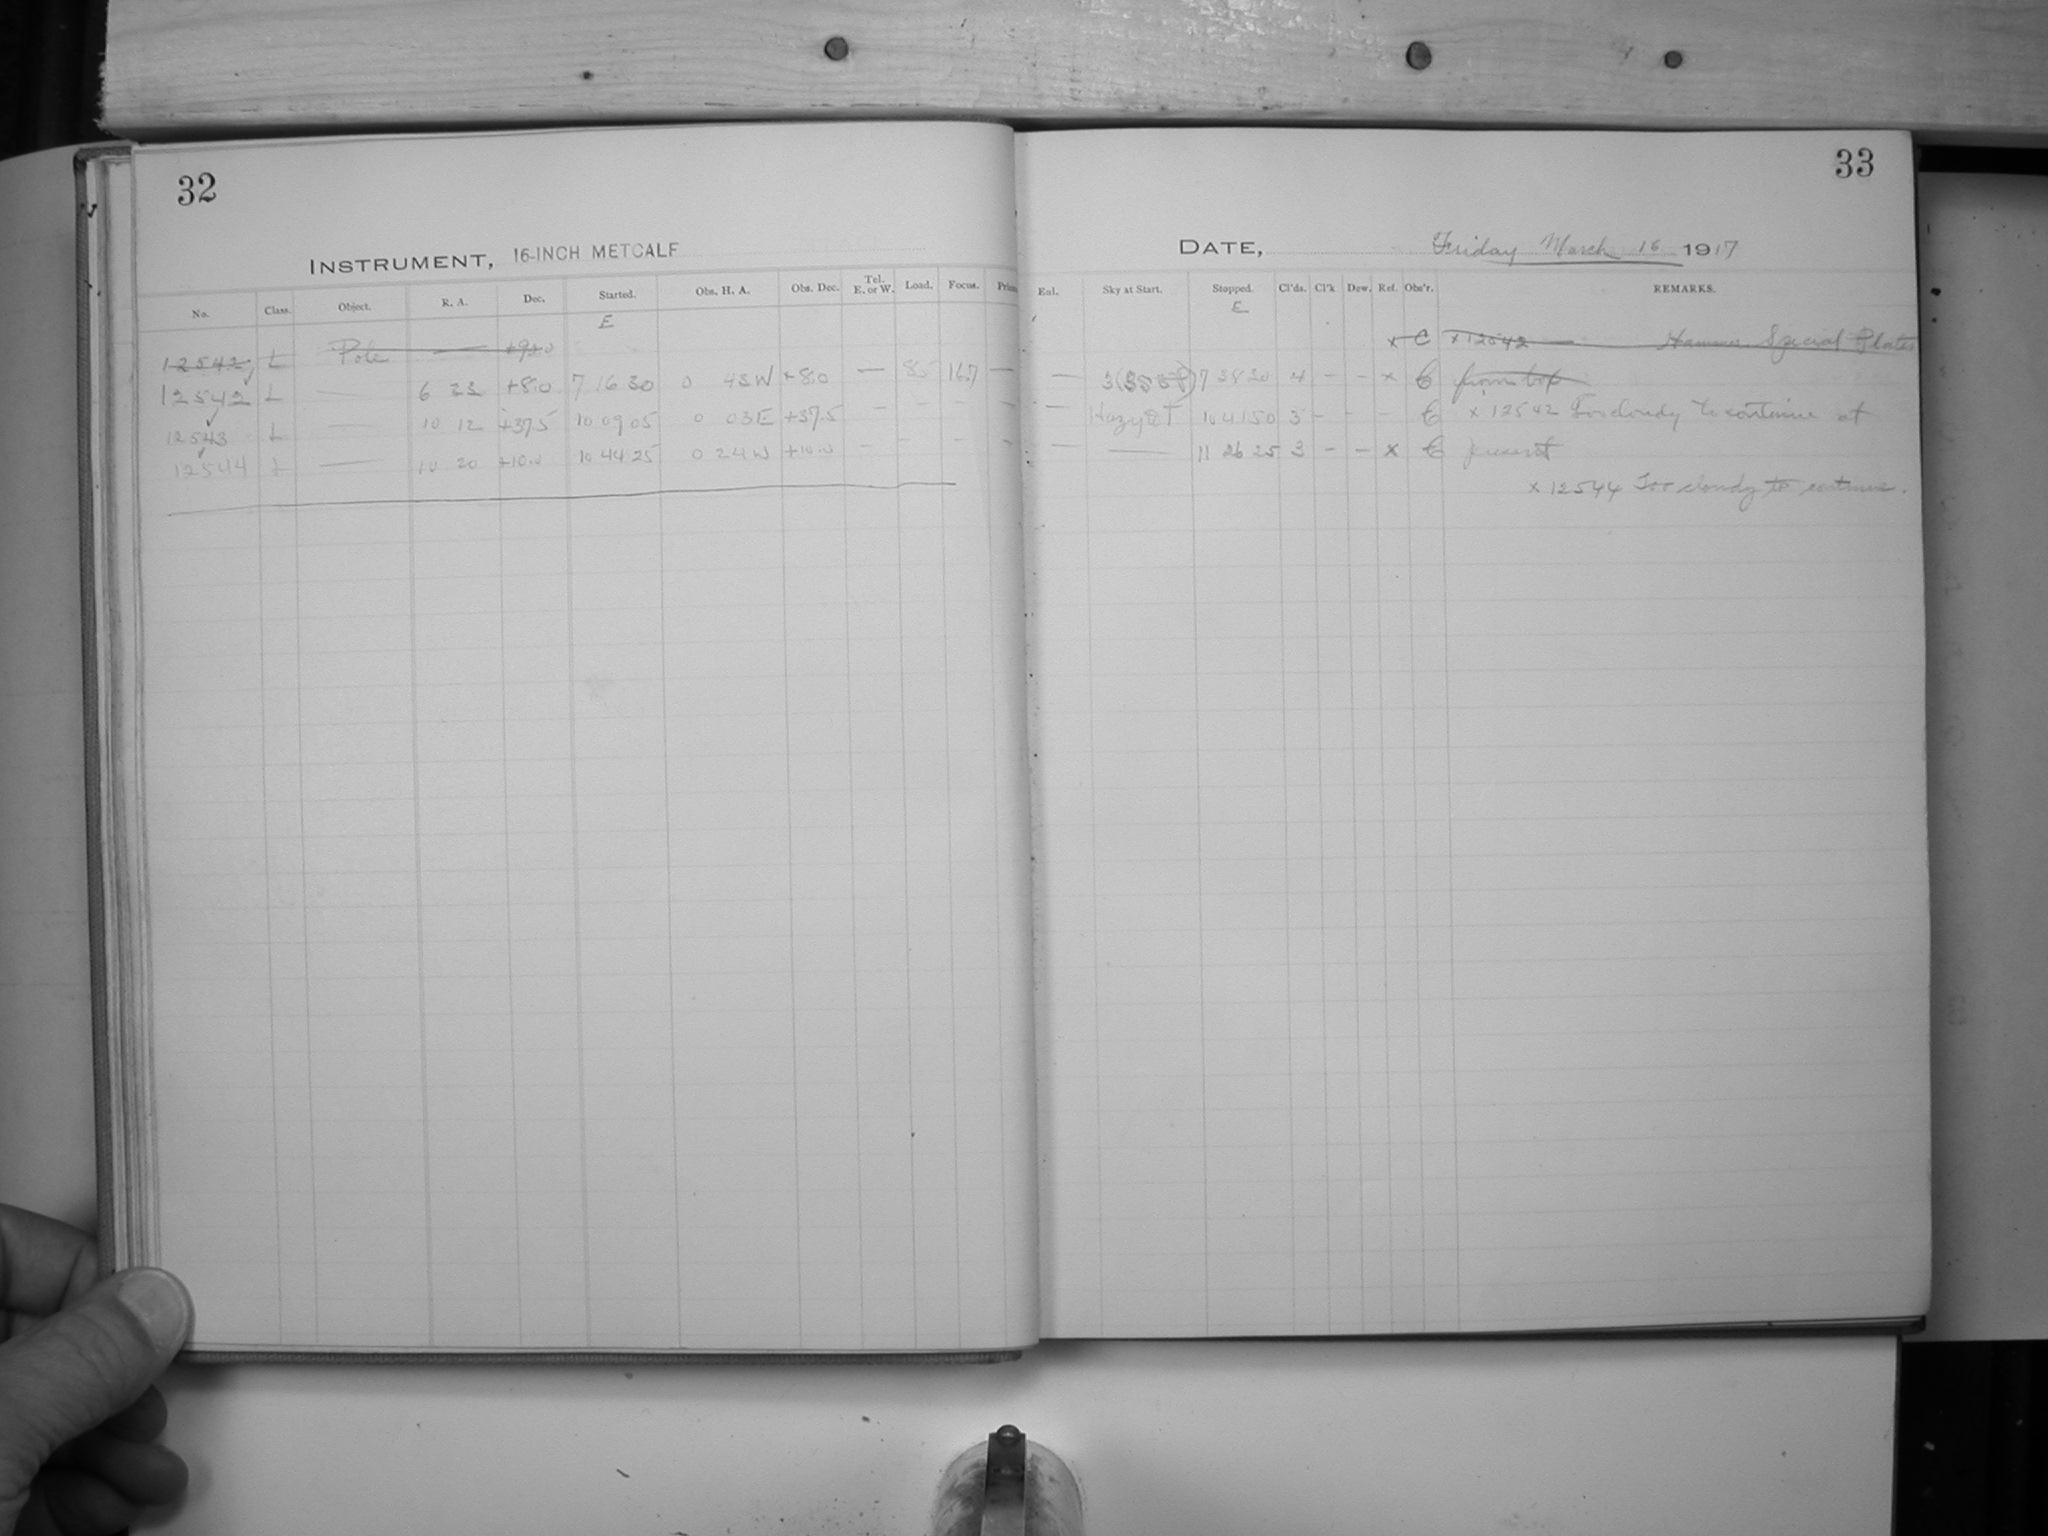 32
INSTRUMENT, 16-INCH METCALF
No. Class. Object. R. A. Dec. Started. Obs. H. A. Obs. Dec. Tel. E. or W. Load. Focus.
E
12542 L Pole — +90
12542 L — 6 23 +8.0 7 16 30 0 43W +8.0 — 85 16.7 —
12543 L — 10 12 +37.5 10 09 05 0 03E +37.5 - - - -
12544 L — 10 20 +10.0 10 44 25 0 24W +10.0 - - - -
33
DATE, Friday March 16 1917
Sky at Start. Stopped. Cl'ds. Cl'k Dew. Ref. Obs'r. REMARKS.
E
x C x 12542 — Hammer Special Plates
— 7 38 30 4 - - x C from box
— Hazy 10 41 50 3 - - - C x 12542 Too cloudy to continue at
— — 11 26 25 3 - - x C present
x 12544 Too cloudy to continue.